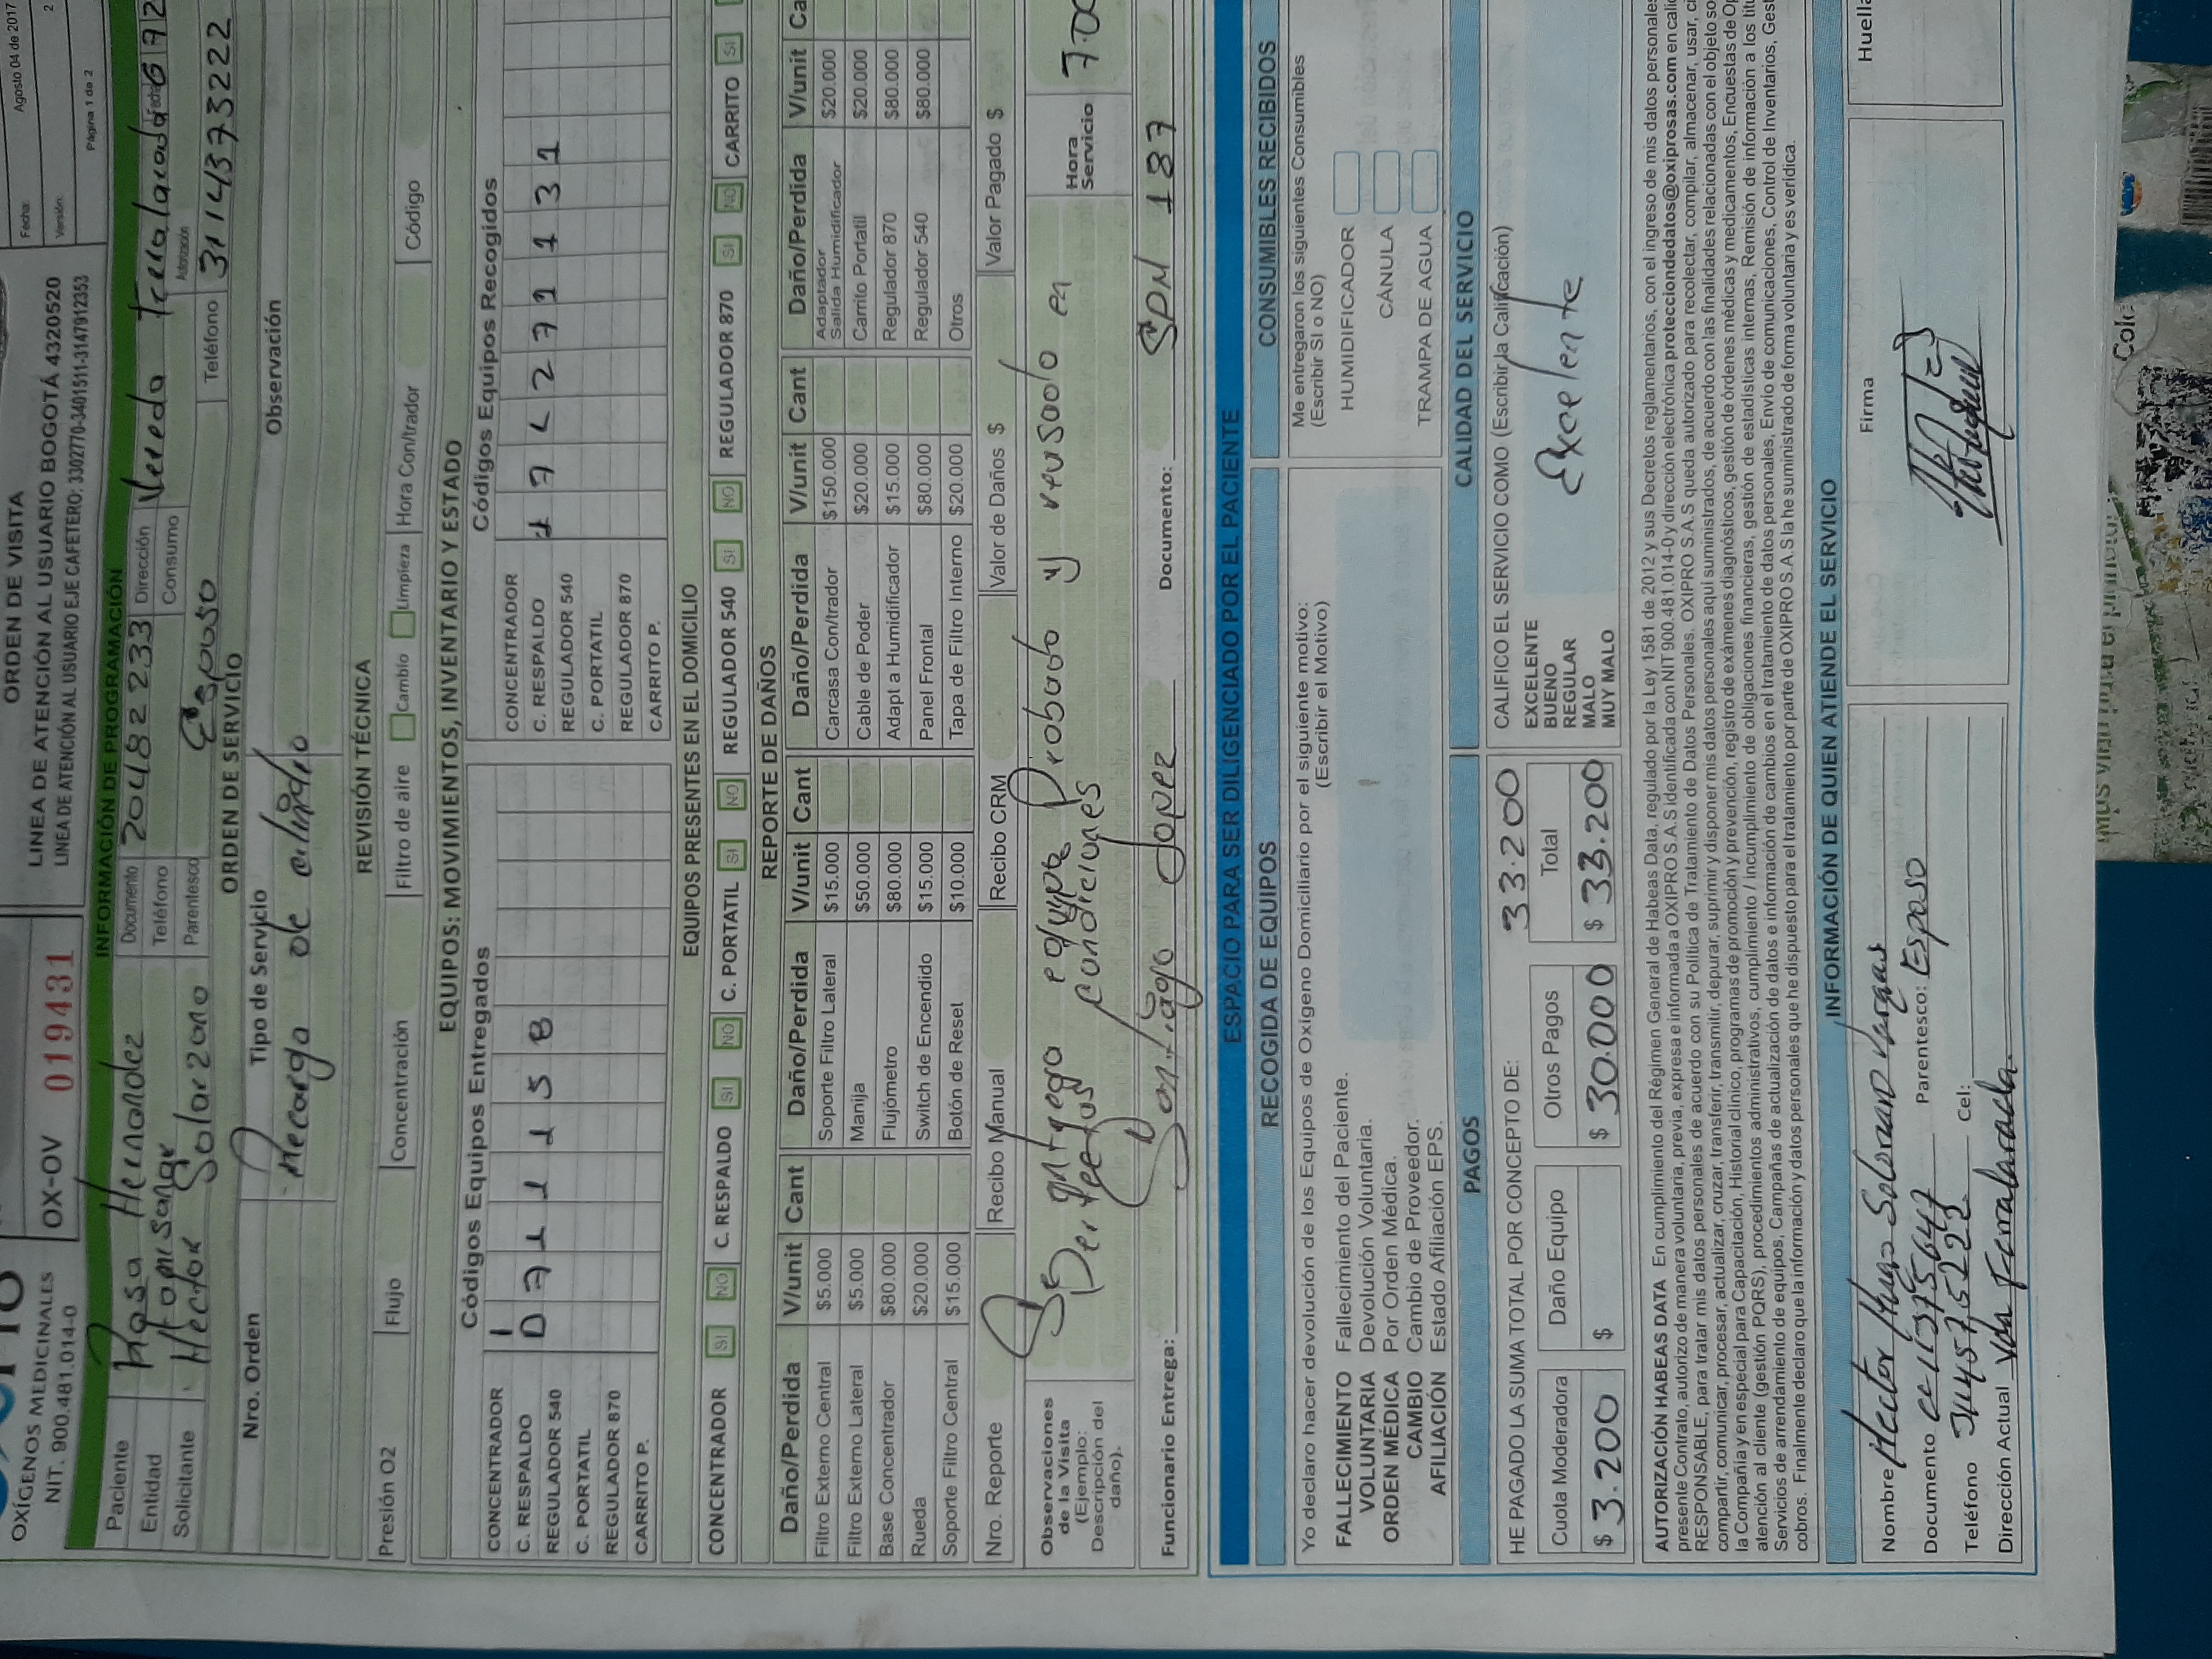 Fecha: Agosto 04 de 2017
ORDEN DE VISITA
Versión: 2
OXÍGENOS MEDICINALES
NIT. 900.481.014-0
OX-OV 019431
LINEA DE ATENCIÓN AL USUARIO BOGOTÁ 4320520
LINEA DE ATENCIÓN AL USUARIO EJE CAFETERO: 3302770-3401511-3147912353
Página 1 de 2
INFORMACIÓN DE PROGRAMACIÓN
Paciente Rosa Hernandez Documento 20482233 Dirección Vereda Ferralarada Fecha
Entidad Teléfono Consumo Autorización
Solicitante Hector Solorzano Parentesco Esposo Teléfono 3114373222
ORDEN DE SERVICIO
Nro. Orden Tipo de Servicio Observación
Recargo de cilindro
REVISIÓN TÉCNICA
Presión O2 Flujo Concentración Filtro de aire Cambio Limpieza Hora Con/trador Código
EQUIPOS: MOVIMIENTOS, INVENTARIO Y ESTADO
Códigos Equipos Entregados Códigos Equipos Recogidos
CONCENTRADOR CONCENTRADOR
C. RESPALDO C. RESPALDO
REGULADOR 540 REGULADOR 540
C. PORTATIL C. PORTATIL
REGULADOR 870 REGULADOR 870
CARRITO P. CARRITO P.
EQUIPOS PRESENTES EN EL DOMICILIO
CONCENTRADOR SI NO C. RESPALDO SI NO C. PORTATIL SI NO REGULADOR 540 SI NO REGULADOR 870 SI NO CARRITO SI
REPORTE DE DAÑOS
Daño/Perdida V/unit Cant Daño/Perdida V/unit Cant Daño/Perdida V/unit Cant Daño/Perdida V/unit Ca
Filtro Externo Central $5.000 Soporte Filtro Lateral $15.000 Carcasa Con/trador $150.000 Adaptador Salida Humidificador $20.000
Filtro Externo Lateral $5.000 Manija $50.000 Cable de Poder $20.000 Carrito Portatil $20.000
Base Concentrador $80.000 Flujómetro $80.000 Adapt a Humidificador $15.000 Regulador 870 $80.000
Rueda $20.000 Switch de Encendido $15.000 Panel Frontal $80.000 Regulador 540 $80.000
Soporte Filtro Central $15.000 Botón de Reset $10.000 Tapa de Filtro Interno $20.000 Otros
Nro. Reporte Recibo Manual Recibo CRM Valor de Daños $ Valor Pagado $
Observaciones de la Visita (Ejemplo: Descripción del daño). Se entrega equipo Probado y revisado en Hora Servicio 7:00
Perfectas condiciones
Funcionario Entrega: Santiago Lopez Documento: SDM 187
ESPACIO PARA SER DILIGENCIADO POR EL PACIENTE
RECOGIDA DE EQUIPOS CONSUMIBLES RECIBIDOS
Yo declaro hacer devolución de los Equipos de Oxígeno Domiciliario por el siguiente motivo:
(Escribir el Motivo)
FALLECIMIENTO Fallecimiento del Paciente.
VOLUNTARIA Devolución Voluntaria.
ORDEN MÉDICA Por Orden Médica.
CAMBIO Cambio de Proveedor.
AFILIACIÓN Estado Afiliación EPS.
Me entregaron los siguientes Consumibles
(Escribir SI o NO)
HUMIDIFICADOR
CÁNULA
TRAMPA DE AGUA
PAGOS CALIDAD DEL SERVICIO
HE PAGADO LA SUMA TOTAL POR CONCEPTO DE: 33.200
Cuota Moderadora Daño Equipo Otros Pagos Total
$ 3.200 $ $ 30.000 $ 33.200
CALIFICO EL SERVICIO COMO (Escribir la Calificación)
EXCELENTE
BUENO
REGULAR
MALO
MUY MALO
Excelente
AUTORIZACIÓN HABEAS DATA En cumplimiento del Régimen General de Habeas Data, regulado por la Ley 1581 de 2012 y sus Decretos reglamentarios, con el ingreso de mis datos personales
presente Contrato, autorizo de manera voluntaria, previa, expresa e informada a OXIPRO S.A.S identificada con NIT 900.481.014-0 y dirección electrónica protecciondedatos@oxiprosas.com en cali
RESPONSABLE, para tratar mis datos personales de acuerdo con su Política de Tratamiento de Datos Personales. OXIPRO S.A.S queda autorizado para recolectar, compilar, almacenar, usar, ci
compartir, comunicar, procesar, actualizar, cruzar, transferir, transmitir, depurar, suprimir y disponer mis datos personales aquí suministrados, de acuerdo con las finalidades relacionadas con el objeto so
la Compañía y en especial para Capacitación, Historial clínico, programas de promoción y prevención, registro de exámenes diagnósticos, gestión de órdenes médicas y medicamentos, Encuestas de Op
atención al cliente (gestión PQRS), procedimientos administrativos, cumplimiento / incumplimiento de obligaciones financieras, gestión de estadísticas internas, Remisión de información a los titu
Servicios de arrendamiento de equipos, Campañas de actualización de datos e información de cambios en el tratamiento de datos personales, Envío de comunicaciones, Control de Inventarios, Gest
cobros. Finalmente declaro que la información y datos personales que he dispuesto para el tratamiento por parte de OXIPRO S.A.S la he suministrado de forma voluntaria y es verídica.
INFORMACIÓN DE QUIEN ATIENDE EL SERVICIO
Nombre Hector Hugo Solorzano Vargas Firma Huella
Documento cc 11375647 Parentesco: Esposo
Teléfono Cel:
Dirección Actual Vda Ferralarada.